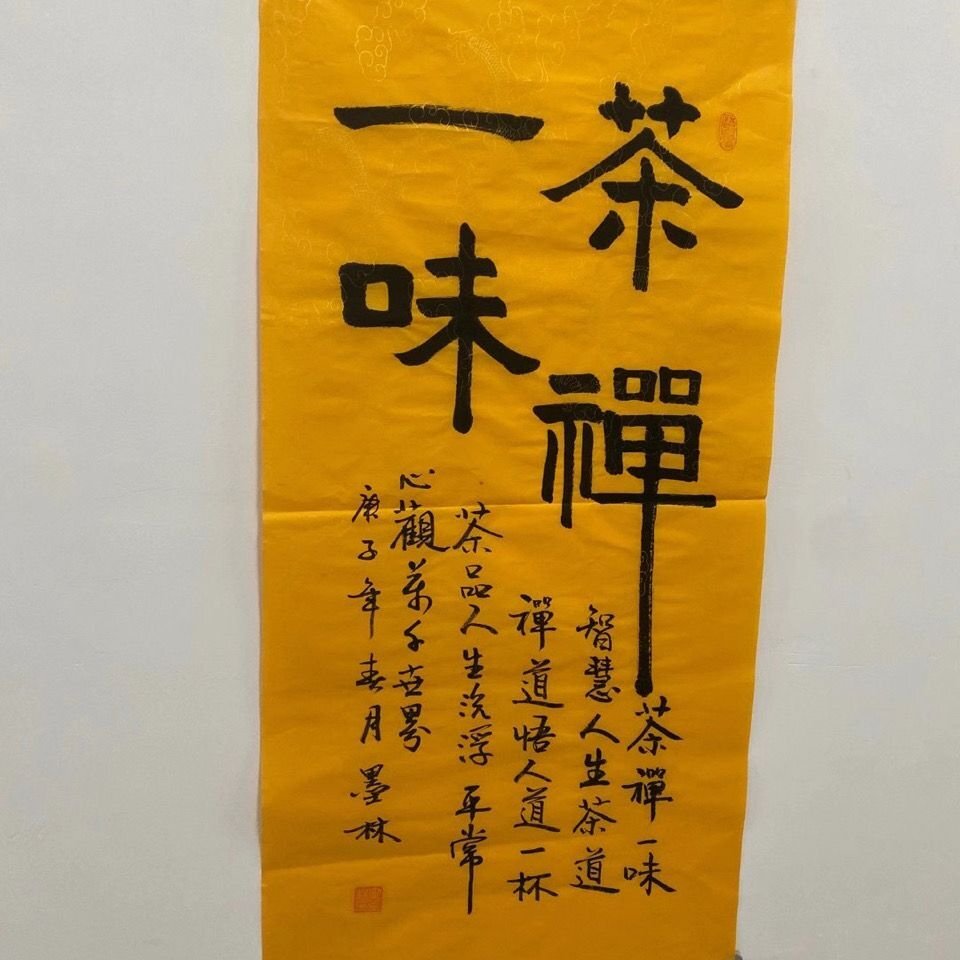 茶禪
一味
茶禪一味
智慧人生茶道
禪道悟人道一杯
茶品人生沉浮平常
心觀萬千世界
庚子年春月墨林